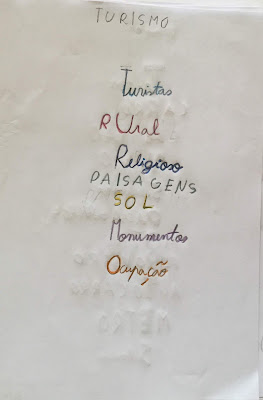 TURISMO
Turistas
RUral
Religioso
PAISAGENS
SOL
Monumentos
Ocupação